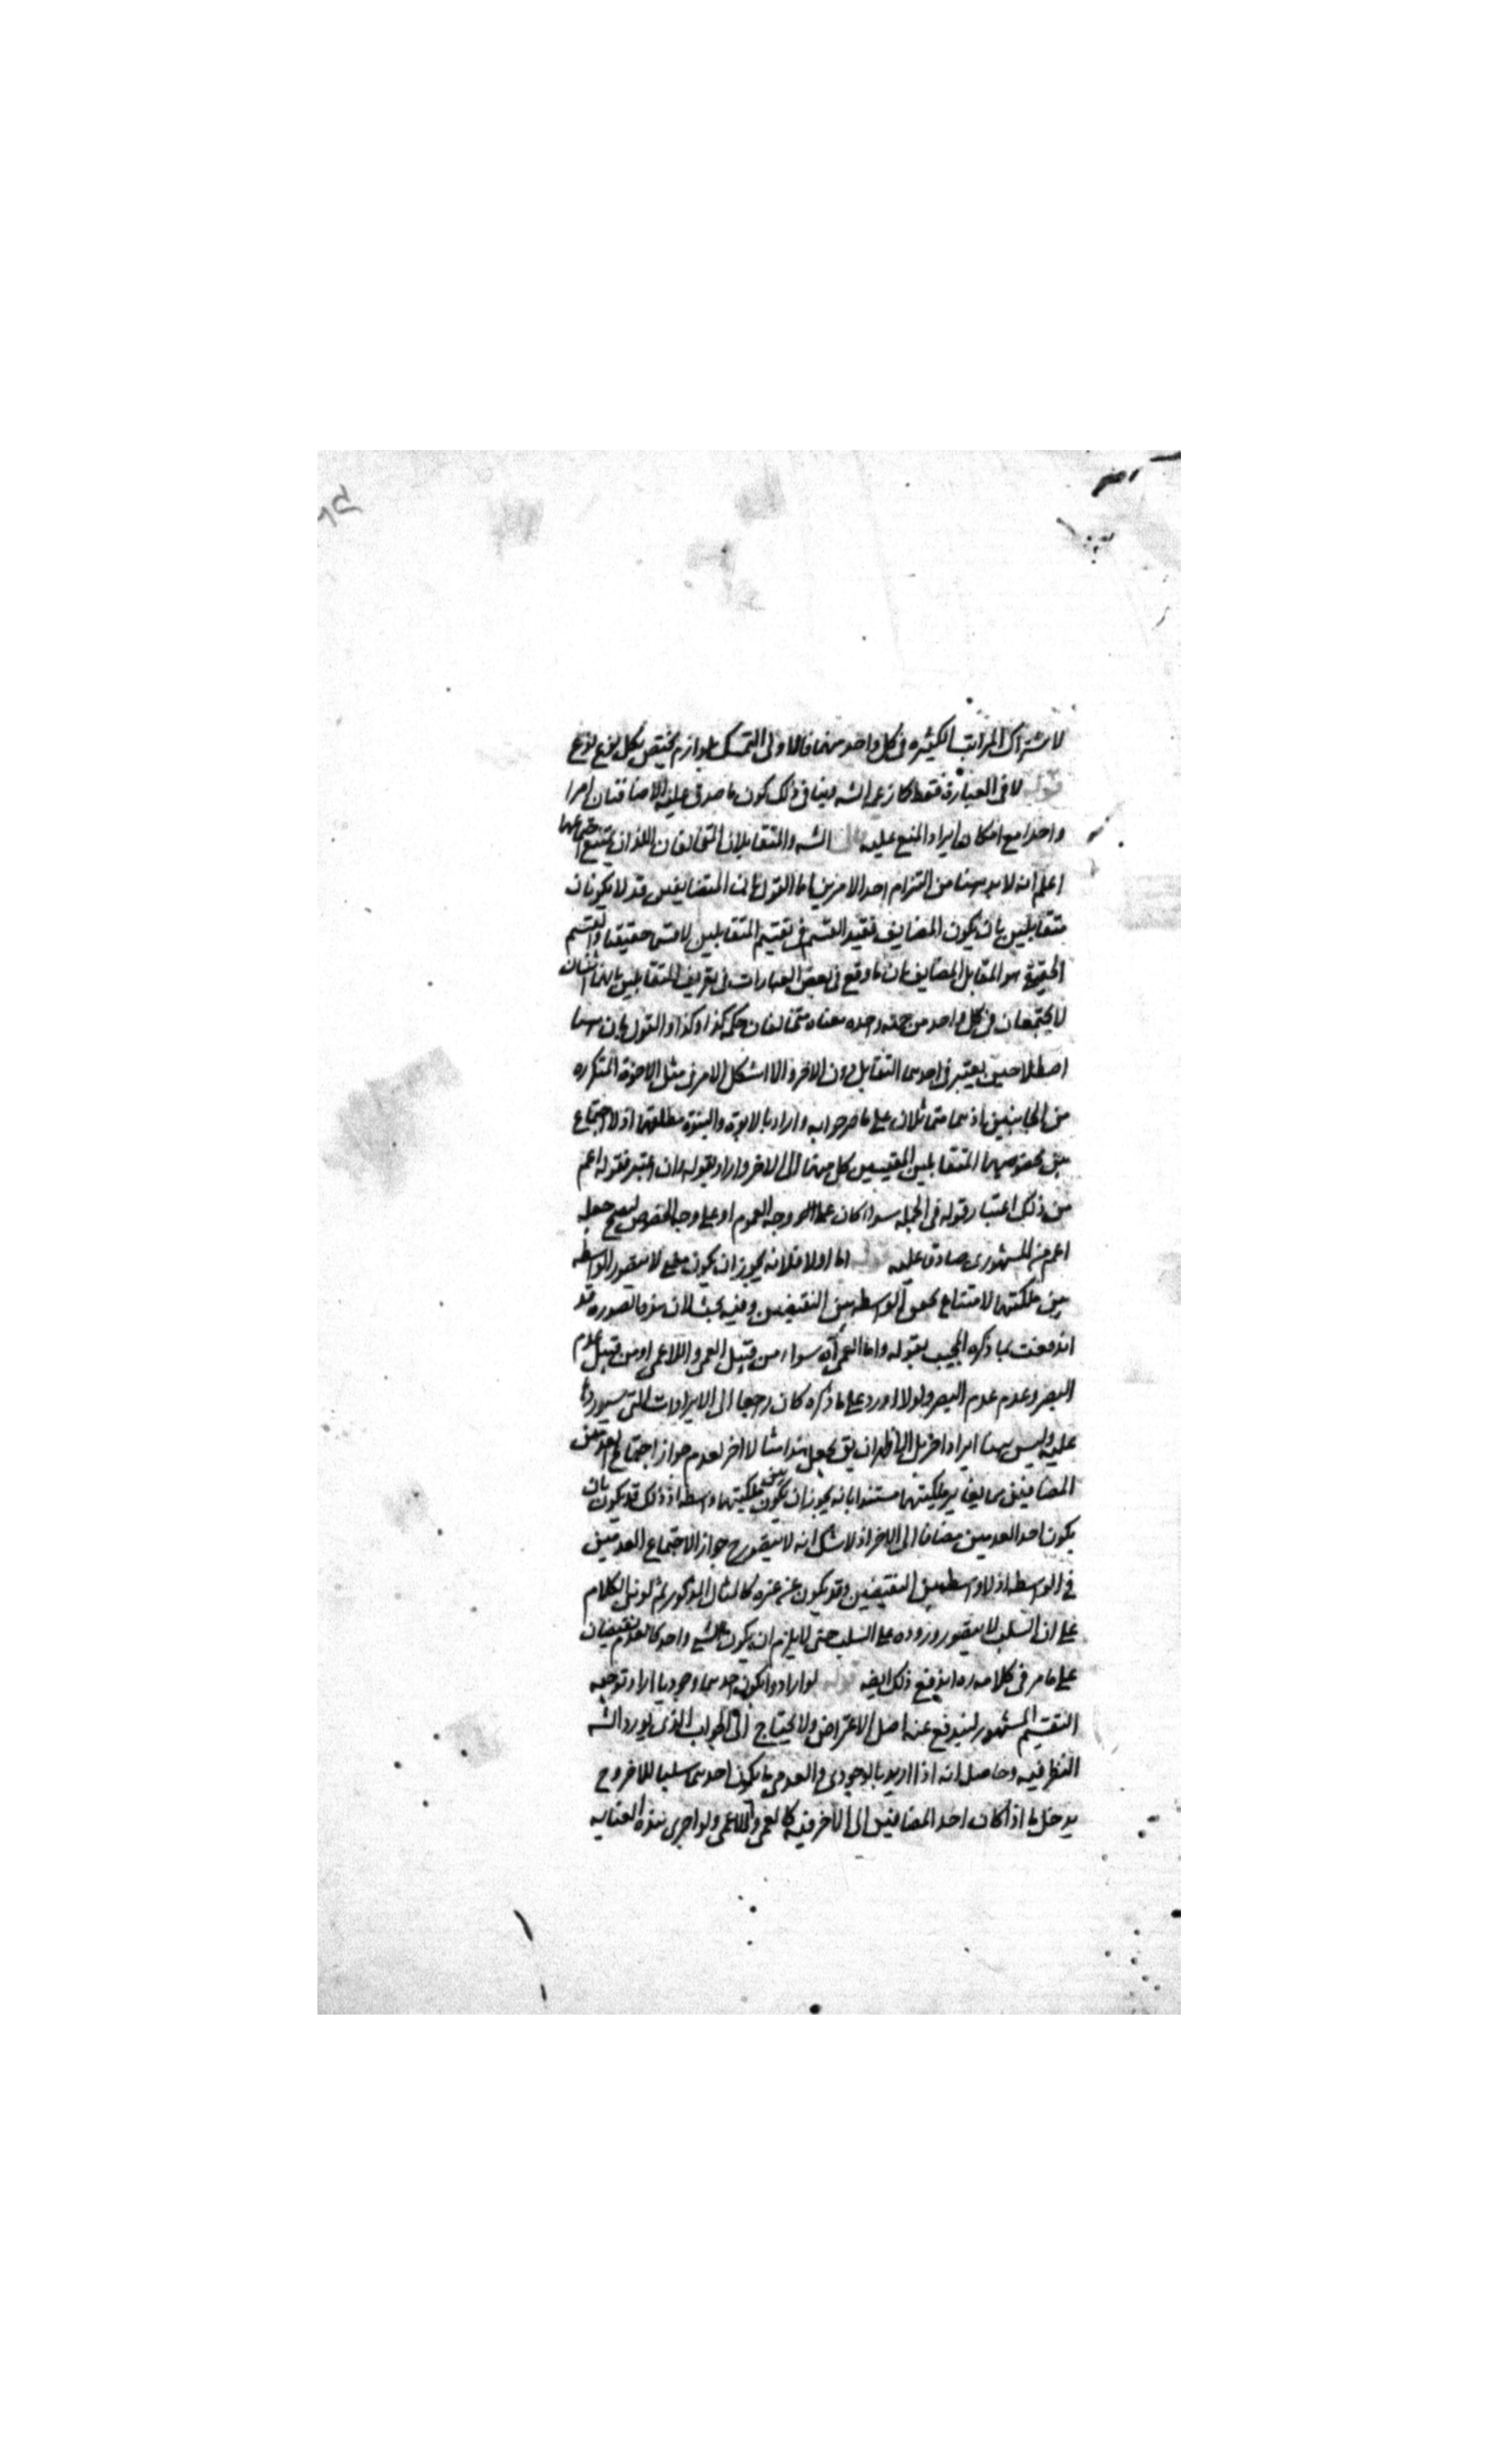 لاشتراك المراتب الكثيره فى كل واحد منهما فالاولى التمسك بلوازم يختص بكل نوع نوع
قوله لا فى العبارة فقط كما زعم الشه وينافى ذلك كون ما صدق عليه الاضافتان امرا
واحدا مع امكان ايراد المنع عليه قال الشه والمتقابلان المتخالفان اللذان يمتنع اجتماعهما
اعلم انه لا بد ههنا من التزام احد الامرين اما القول بان المتضايفين قد لا يكونان
متقابلين بان يكون المضايف فقيد القسم فى تقسيم المتقابلين لا قسما حقيقيا والقسم
الحقيقة هو المقابل المضايف بان ما وقع فى بعض العبارات فى تعريف المتقابلين بانهما اثنان
لا يجتمعان فى كل واحد من جهة واحده معناه متخالفان حكمه كذا وكذا والقول بان ههنا
اصطلاحين يعتبر فى احدهما التقابل دون الاخر والا اشكل الامر فى مثل الاخوة المتكرره
من الجانبين اذ هما متماثلان على ما صرحوا به واراد بالابوة والبنوة مطلقهما اذ لا اجتماع
بين مخصوصيهما المتقابلين المقيسين كل منهما الى الاخر واراد بقوله وان اعتبر فقوله اعم
من ذلك اعتبار قوله فى الجمله سواء كان على وجه العموم او على وجه الخصوص ليصح جعله
اعم من المشهورى صادق عليه قوله اما اولا فلانه يجوز ان يكون لا يتصور الواسطه
بين ملكتهما لامتناع تحقق الواسطه بين النقيضين وفيه بحث لان هذه الصوره قد
اندفعت بما ذكره المجيب بقوله واما العمى آه سواء من قبيل العمى واللاعمى او من قبيل عدم
البصر وعدم عدم البصر ولولا اورد على ما ذكره كان رجعا الى الايرادات التى سيوردها
عليه وليس ههنا ايرادا اخر بل الظ ان يق بجعل هذا مثالا اخر لعدم جواز اجتماع العدمين
المضافين مستندا بانه يجوز ان يكون بين ملكيتهما واسطه اذ ذلك قد يكون بان
يكون احد العدمين مضافا الى الاخر اذ لا شك انه لا يتصور ح جواز الاجتماع العدمين
فى الواسطه اذ لا واسطه بين النقيضين وقد يكون عن غيره كالمثال المذكور ثم لو نزل الكلام
على ان السلب لا يتصور وروده على السلب حتى لا يلزم ان يكون لشى واحد كالعدم نقيضان
على ما مر فى كلامه ره اندفع ذلك ايضه قوله لو ارادوا بكون احدهما وجوديا اراد توجيه
التقسيم المشهور ليندفع عنه اصل الاعتراض ولا يحتاج الى الجواب الذى يورد الشه
النظر فيه وحاصل انه اذا اريد بالوجودى والعدمى ما يكون احدهما سلبا للاخر وح
يدخل ما اذا كان احد المضافين الى الاخر فيه كالعمى واللاعمى ولو اجرى هذه العنايه